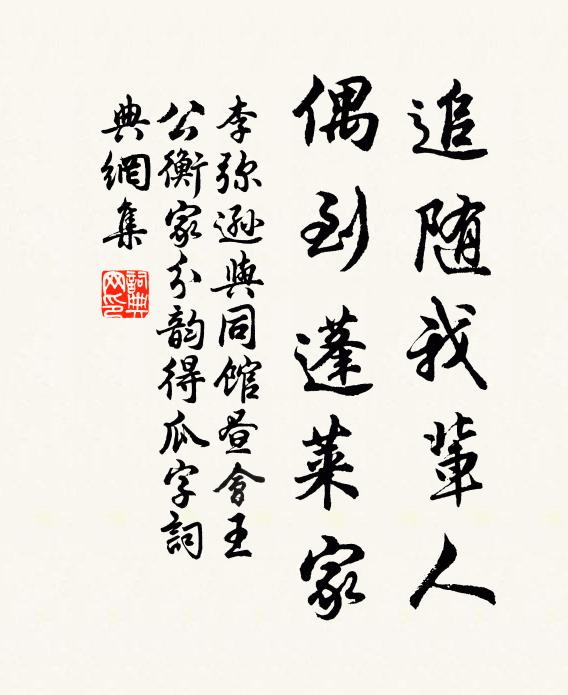 追随我輩人
偶到蓬萊家
李弥遜與同館昼會王
公衡家分韵得瓜字詞
典網集
詞典网印